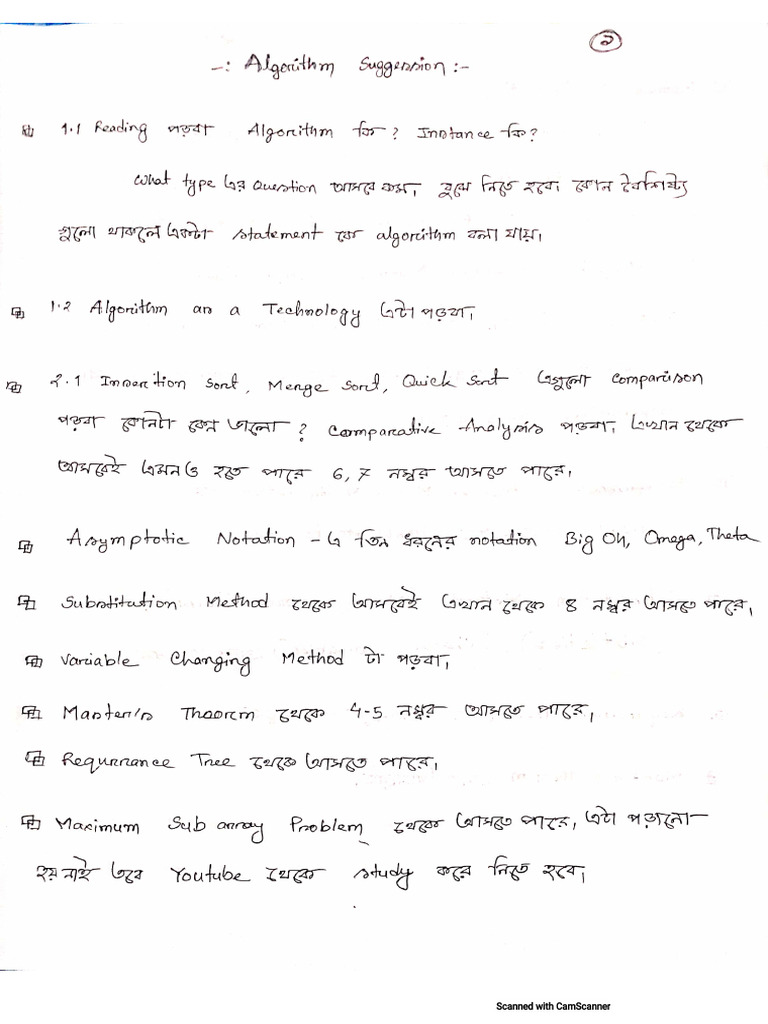 ১
-: Algorithm Suggession :-
1.1 Reading পড়বা Algorithm কি? Instance কি?
What type এর Question আসবে কম। বুঝে নিতে হবে। কোন বৈশিষ্ট্য
গুলো থাকলে একটা statement কে algorithm বলা যায়।
1.2 Algorithm as a Technology এটা পড়বা।
2.1 Insertion Sort, Merge Sort, Quick Sort এগুলো comparison
পড়বা কোনটা কেন ভালো? Comparative Analysis পড়বা, এখান থেকে
আসবেই এমনও হতে পারে 6,7 নম্বর আসতে পারে।
Asymptotic Notation - এ তিন ধরনের notation Big Oh, Omega, Theta
Substitution Method থেকে আসবেই এখান থেকে 8 নম্বর আসতে পারে।
Variable Changing Method টা পড়বা।
Master's Theorem থেকে 4-5 নম্বর আসতে পারে।
Requrrance Tree থেকে আসতে পারে।
Maximum Sub array Problem থেকে আসতে পারে, এটা পড়ানো
হয় নাই তবে Youtube থেকে study করে নিতে হবে।
Scanned with CamScanner